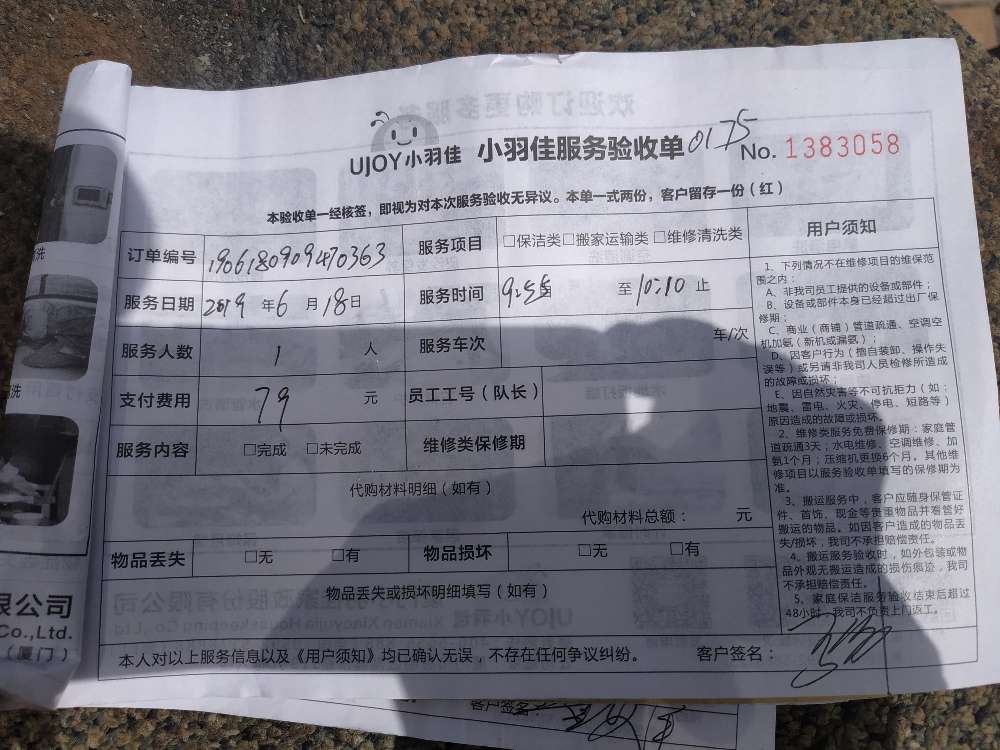 欢迎订购更多服务
UJOY小羽佳 小羽佳服务验收单 0175 No. 1383058
本验收单一经核签，即视为对本次服务验收无异议。本单一式两份，客户留存一份（红）
订单编号 1906180909470363 服务项目 □保洁类 □搬家运输类 □维修清洗类
服务日期 2019 年 6 月 18 日 服务时间 9:55 至 10:10 止
服务人数 1 人 服务车次 车/次
支付费用 79 元 员工工号（队长）
服务内容 □完成 □未完成 维修类保修期
代购材料明细（如有）
代购材料总额： 元
物品丢失 □无 □有 物品损坏 □无 □有
物品丢失或损坏明细填写（如有）
本人对以上服务信息以及《用户须知》均已确认无误，不存在任何争议纠纷。 客户签名：
用户须知
1、下列情况不在维修项目的维保范
围之内：
A、非我司员工提供的设备或部件；
B、设备或部件本身已经超过出厂保
修期；
C、商业（商铺）管道疏通、空调空
机加氨（新机或漏氨）；
D、因客户行为（擅自装卸、操作失
误等）或另请非我司人员检修所造成
的故障或损坏；
E、因自然灾害等不可抗拒力（如：
地震、雷电、火灾、停电、短路等）
原因造成的故障或损坏。
2、维修类服务免费保修期：家庭管
道疏通3天；水电维修、空调维修、加
氨1个月；压缩机更换6个月。其他维
修项目以服务验收单填写的保修期为
准。
3、搬运服务中，客户应随身保管证
件、首饰、现金等贵重物品并看管好
搬运的物品。如因客户造成的物品丢
失/损坏，我司不承担赔偿责任。
4、搬运服务验收时，如外包装或物
品外观无搬运造成的损伤痕迹，我司
不承担赔偿责任。
5、家庭保洁服务验收结束后超过
48小时，我司不负责上门返工。
限公司
Co.,Ltd.
（厦门）
客户签名：